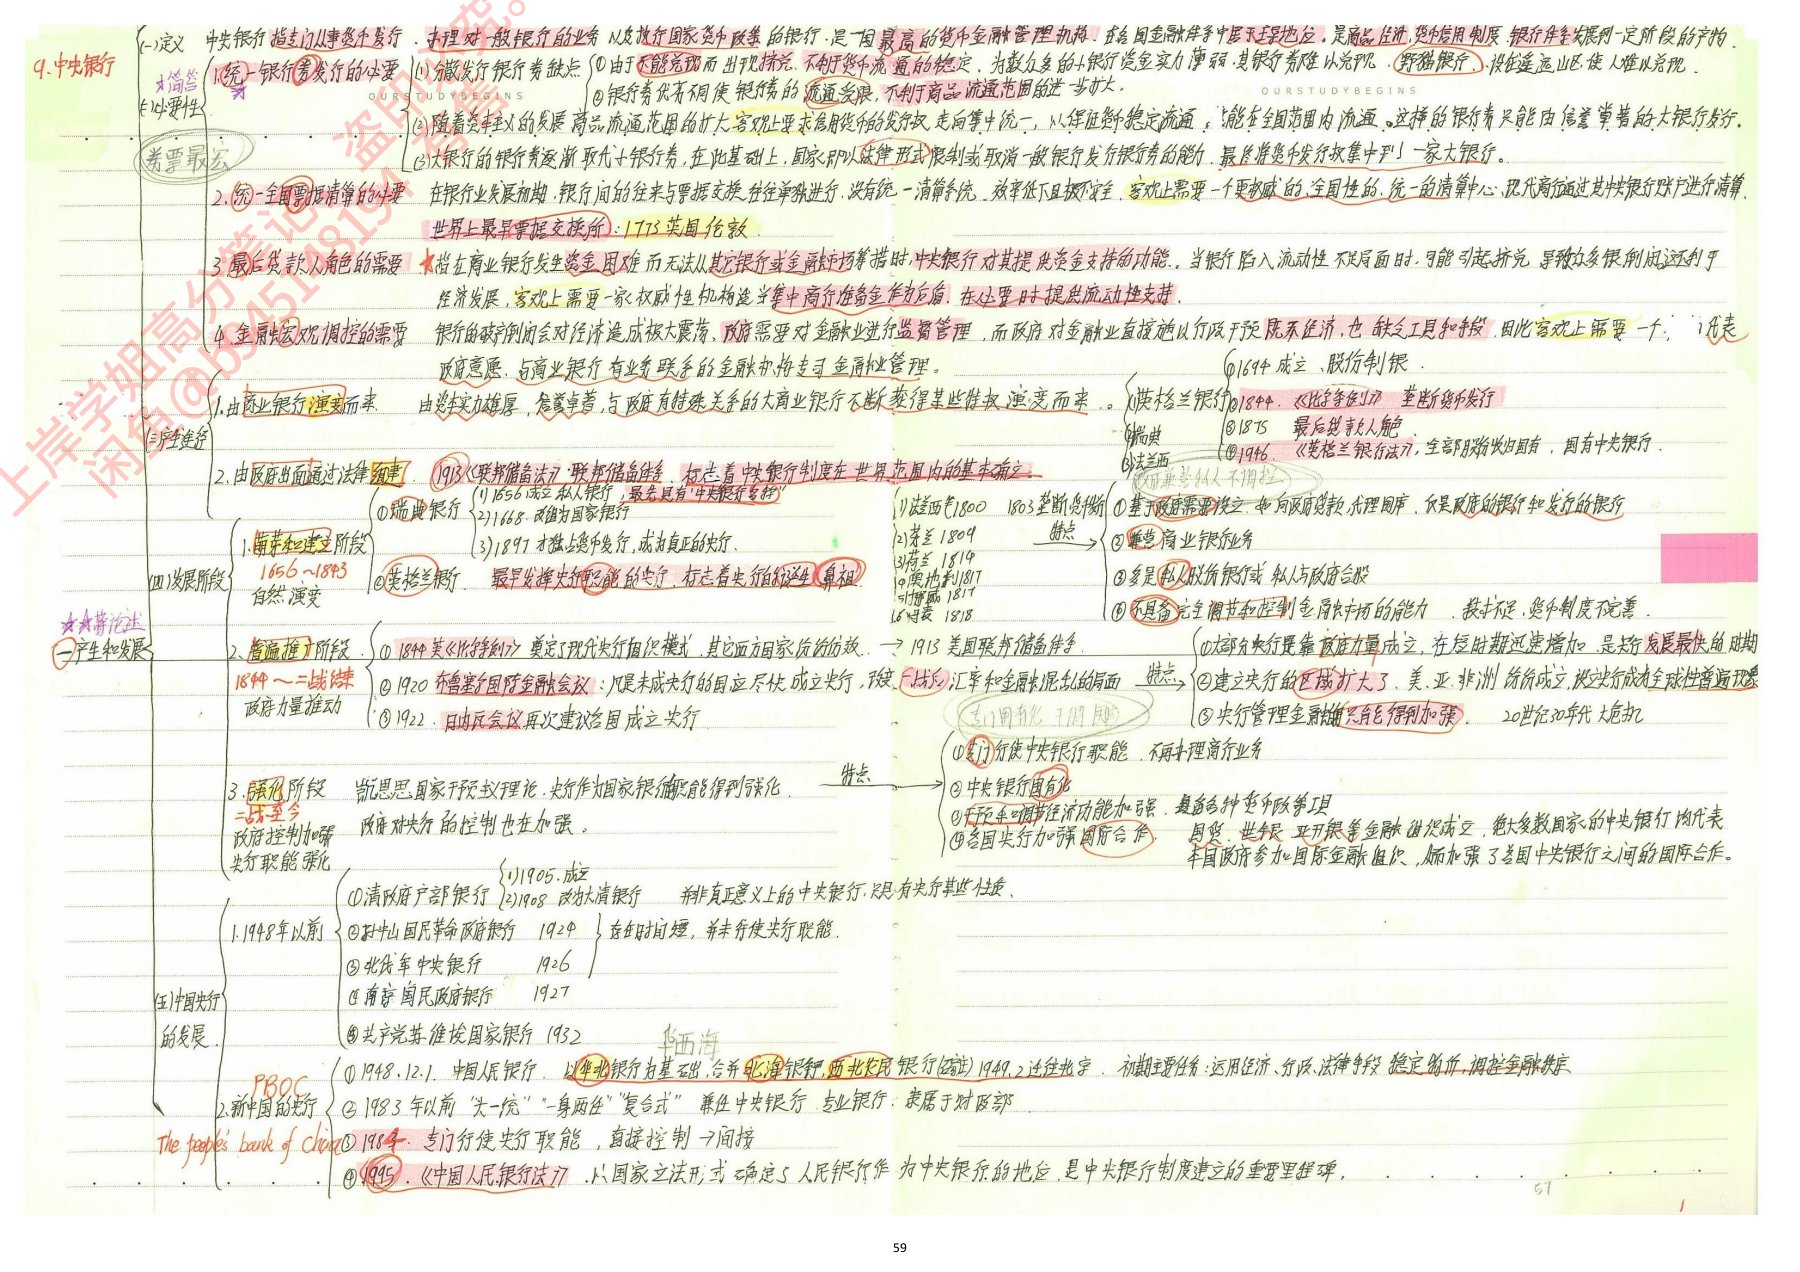 9.中央银行
(一)定义 中央银行指专门从事货币发行、办理对一般银行的业务以及执行国家货币政策的银行.是一国最高的货币金融管理机构.在各国金融体系中居于主导地位.是商品经济,货币信用制度,银行体系发展到一定阶段的产物.
OURSTUDYBEGINS
OURSTUDYBEGINS
☆简答
(二)必要性
券票最宏
1.统一银行券发行的必要
(1)分散发行银行券缺点
①由于不能兑现而出现挤兑.不利于货币流通的稳定.为数众多的小银行资金实力薄弱.其银行券难以兑现.(野猫银行).设在遥远山区使人难以兑现.
②银行券优劣不同使银行券的流通受限,不利于商品流通范围的进一步扩大.
(2)随着资本主义的发展商品流通范围的扩大客观上要求信用货币的发行权走向集中统一,以保证货币稳定流通.能在全国范围内流通.这样的银行券只能由信誉卓著的大银行发行.
(3)大银行的银行券逐渐取代小银行券,在此基础上,国家即以法律形式限制或取消一般银行发行银行券的能力.最终将货币发行权集中到了一家大银行.
2.统一全国票据清算的必要 在银行业发展初期.银行间的往来与票据交换往往单独进行.没有统一清算系统.效率低下且极不安全.客观上需要一个更权威的.全国性的.统一的清算中心.现代商行通过其中央银行账户进行清算.
世界上最早票据交换所:1773英国伦敦.
3.最后贷款人角色的需要 ★指在商业银行发生资金困难而无法从其它银行或金融市场筹措时.中央银行对其提供资金支持的功能.当银行陷入流动性不足局面时.可能引起挤兑 导致众多银行倒闭这不利于
经济发展,客观上需要一家权威性机构适当集中商行准备金作为后盾.在必要时提供流动性支持.
4.金融宏观调控的需要 银行的破产倒闭会对经济造成极大震荡,政府需要对金融业进行监督管理,而政府对金融业直接施以行政干预既不经济,也缺乏工具和手段.因此客观上需要一个 代表
政府意愿.与商业银行有业务联系的金融机构专司金融业管理.
(三)产生途径
1.由商业银行演变而来 由资本实力雄厚,信誉卓著,与政府有特殊关系的大商业银行不断获得某些特权演变而来.
(1)英格兰银行
①1694成立、股份制银行.
②1844.《比尔条例》 垄断货币发行
③1875 最后贷款人角色
④1946.《英格兰银行法》,全部股份收归国有,国有中央银行.
(2)瑞典
(3)法兰西
2.由政府出面通过法律组建 1913《联邦储备法》·联邦储备体系.标志着中央银行制度在世界范围内的基本确立.
★★简论述
(一)产生和发展
(四)发展阶段
1.萌芽和建立阶段
1656~1843
自然演变
①瑞典银行
(1)1656成立 私人银行,最先具有"中央银行名称"
(2)1668.改组为国家银行
(3)1897才独占货币发行,成为真正的央行.
②英格兰银行. 最早发挥央行职能的央行,标志着央行的诞生(鼻祖)
(1)法兰西1800 1803垄断货币发行
(2)芬兰 1809
(3)荷兰 1814
(4)奥地利1817
(5)挪威 1817
(6)丹麦 1818
特点
政府兼营私人不调控
①基于政府需要设立.如向政府贷款.代理国库.仅是政府的银行和发行的银行
②兼营商业银行业务
③多是私人股份银行或私人与政府合股
④不具备完全调节和控制金融市场的能力.技术不足,货币制度不完善.
2.普遍推行阶段
1844~二战结束
政府力量推动
①1844英《比尔条例》奠定了现代央行组织模式.其它西方国家纷纷仿效.→1913美国联邦储备体系.
②1920布鲁塞尔国际金融会议:凡是未成央行的国应尽快成立央行,改变(一战后)汇率和金融混乱的局面
③1922.日内瓦会议再次建议各国成立央行
特点
①大部分央行是靠政府力量成立,在短时期迅速增加.是央行发展最快的时期
②建立央行的区域扩大了.美.亚.非洲纷纷成立,设立央行成为全球性普遍现象
③央行管理金融的职能得到加强. 20世纪30年代大危机
3.强化阶段
二战至今
政府控制加强
央行职能强化
凯恩思.国家干预主义理论.央行作为国家银行的职能得到强化.
政府对央行的控制也在加强.
特点
①专门行使中央银行职能 不再办理商行业务
②中央银行国有化
③干预和调节经济功能加强.具备各种货币政策工具
④各国央行加强国际合作 国货.世行.亚开银等金融组织成立,绝大多数国家的中央银行均代表
本国政府参加国际金融组织,从而加强了各国中央银行之间的国际合作.
(五)中国央行的发展.
1.1948年以前
①清政府户部银行 (1)1905.成立
(2)1908 改为大清银行 并非真正意义上的中央银行.只具有央行某些性质.
②孙中山国民革命政府银行 1924
存在时间短,并未行使央行职能.
③北伐军中央银行 1926
④南京国民政府银行 1927
⑤共产党苏维埃国家银行 1932
华西海
PBOC
2.新中国的央行
The people's bank of China
①1948.12.1.中国人民银行.以华北银行为基础,合并北海银行,西北农民银行(石家庄)1949.2迁往北京.初期主要任务:运用经济.行政.法律手段稳定物价,调控金融秩序
②1983年以前"大一统""一身两任""复合式" 兼任中央银行.专业银行.隶属于财政部
③1984.专门行使央行职能,直接控制→间接
④1995.《中国人民银行法》.以国家立法形式确定了人民银行作为中央银行的地位,是中央银行制度建立的重要里程碑.
57
1
上岸学姐高分笔记
闲鱼@b945148194
盗印必究。
59